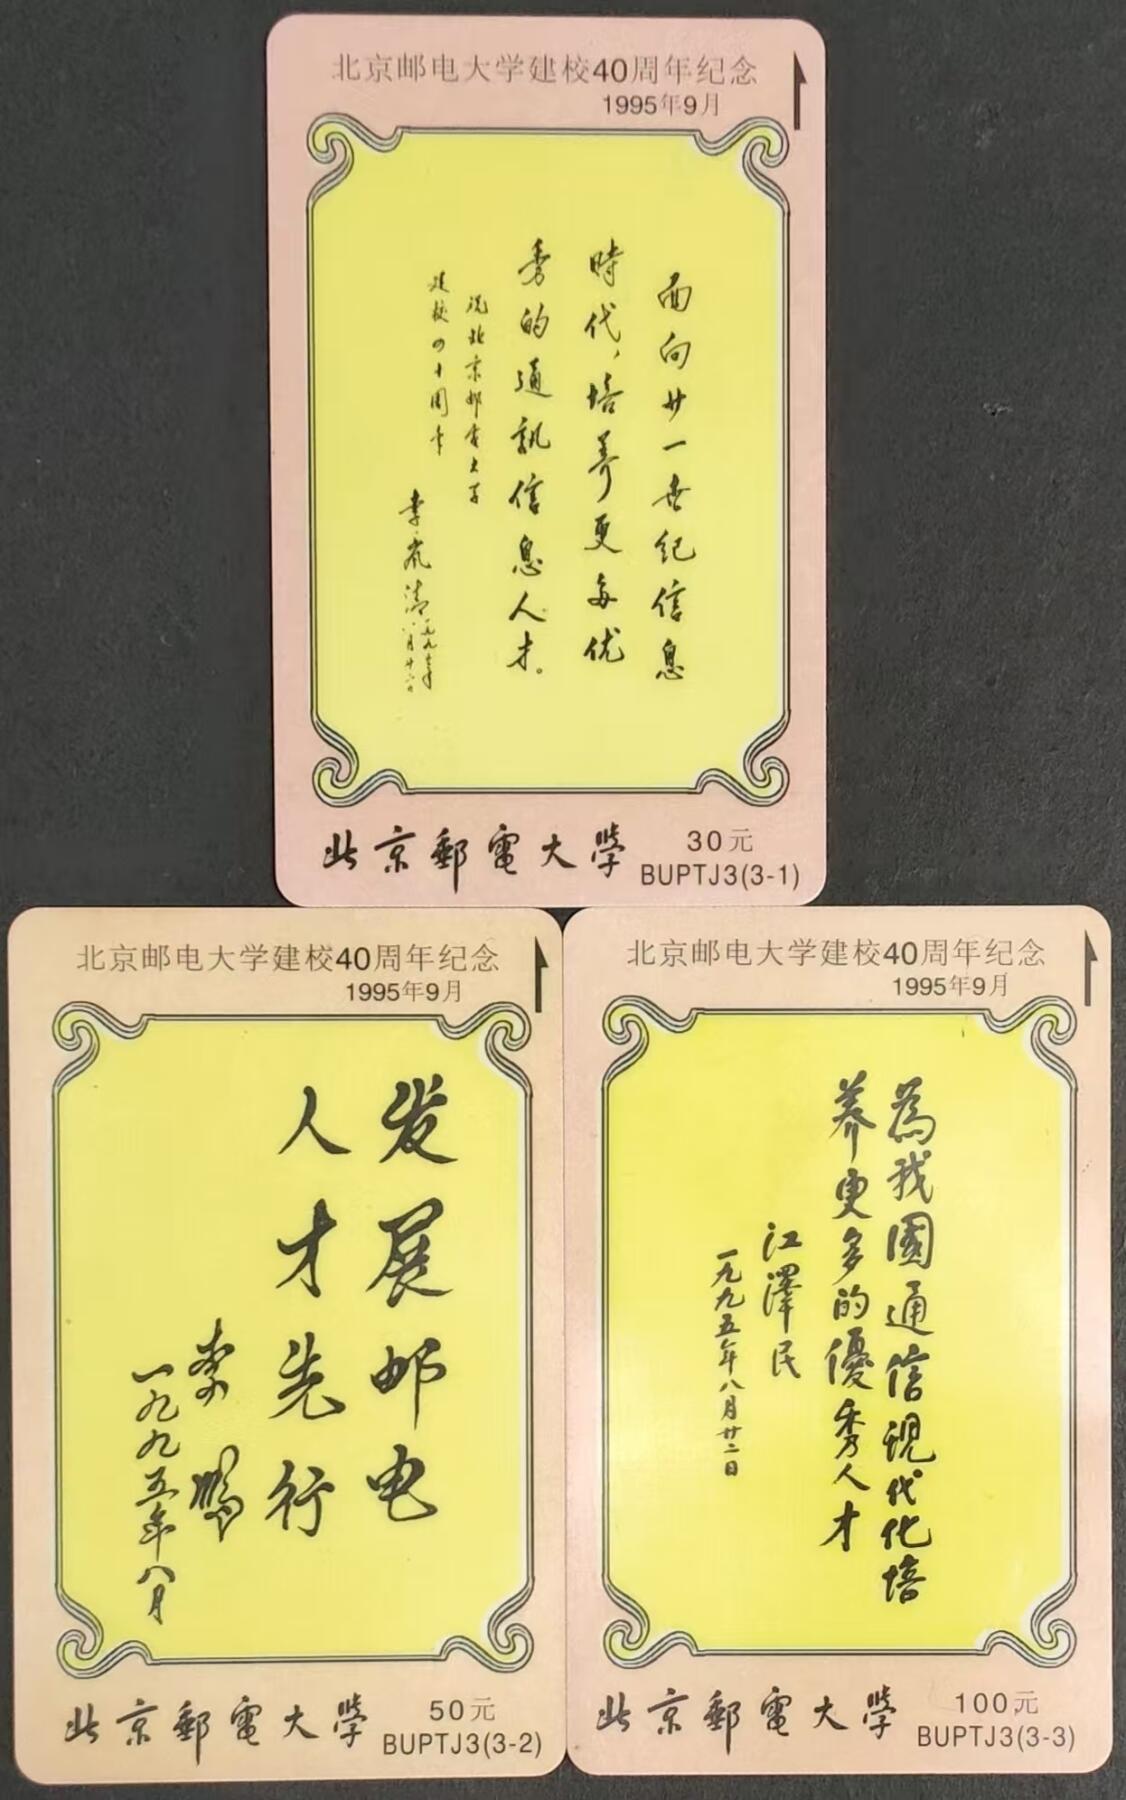 北京邮电大学建校40周年纪念
1995年9月
面向廿一世纪信息
時代，培养更多优
秀的通訊信息人才。
祝北京邮电大学
建校四十周年
李岚清
一九九五年
八月廿二日
北京郵電大學
30元
BUPTJ3(3-1)
北京邮电大学建校40周年纪念
1995年9月
发展邮电
人才先行
李鹏
一九九五年八月
北京郵電大學
50元
BUPTJ3(3-2)
北京邮电大学建校40周年纪念
1995年9月
為我國通信現代化培
养更多的優秀人才
江澤民
一九九五年八月廿二日
北京郵電大學
100元
BUPTJ3(3-3)